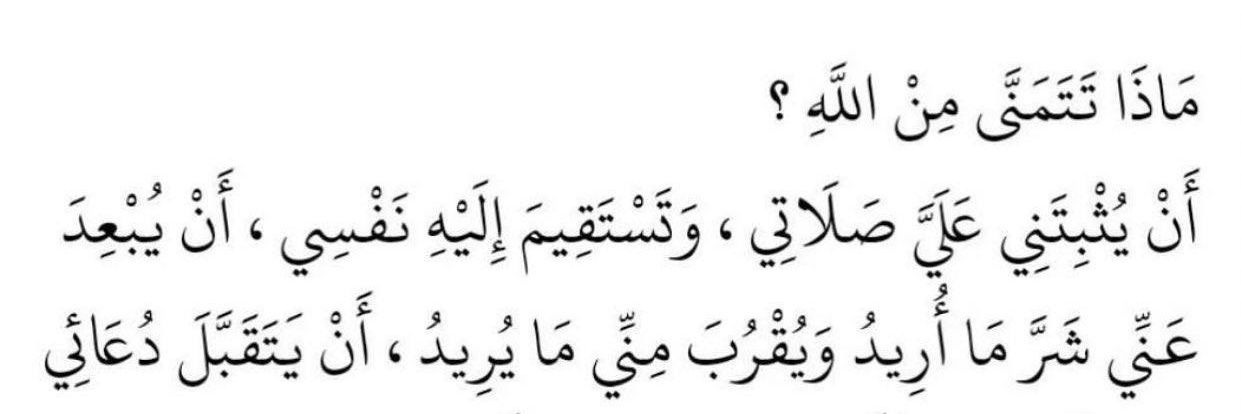 مَاذَا تَتَمَنَّى مِنْ اللَّهِ ؟
أَنْ يُثْبِتَنِي عَلَيَّ صَلَاتِي ، وَتَسْتَقِيمَ إِلَيْهِ نَفْسِي ، أَنْ يُبْعِدَ
عَنِّي شَرَّ مَا أُرِيدُ وَيُقْرُبَ مِنِّي مَا يُرِيدُ ، أَنْ يَتَقَبَّلَ دُعَائِي